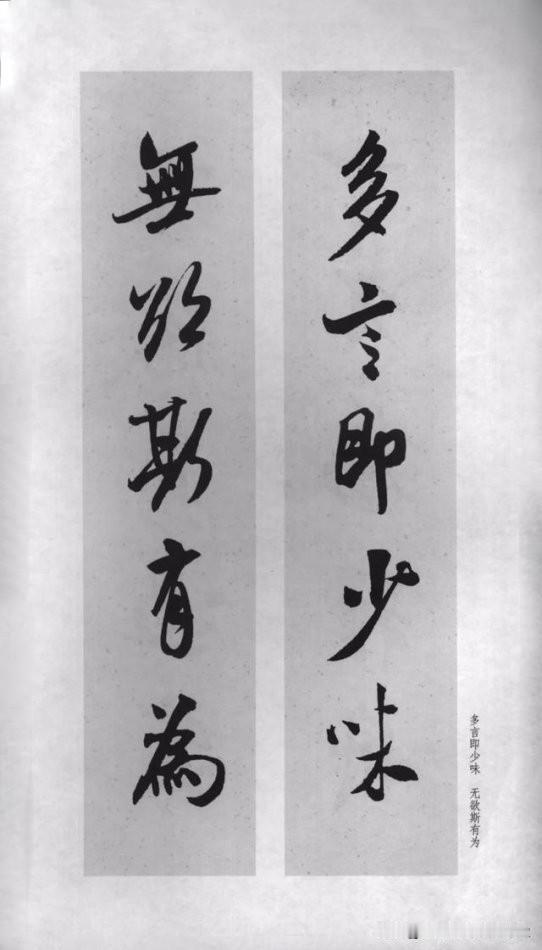 多言即少味
無欲斯有為
多言即少味 无欲斯有为